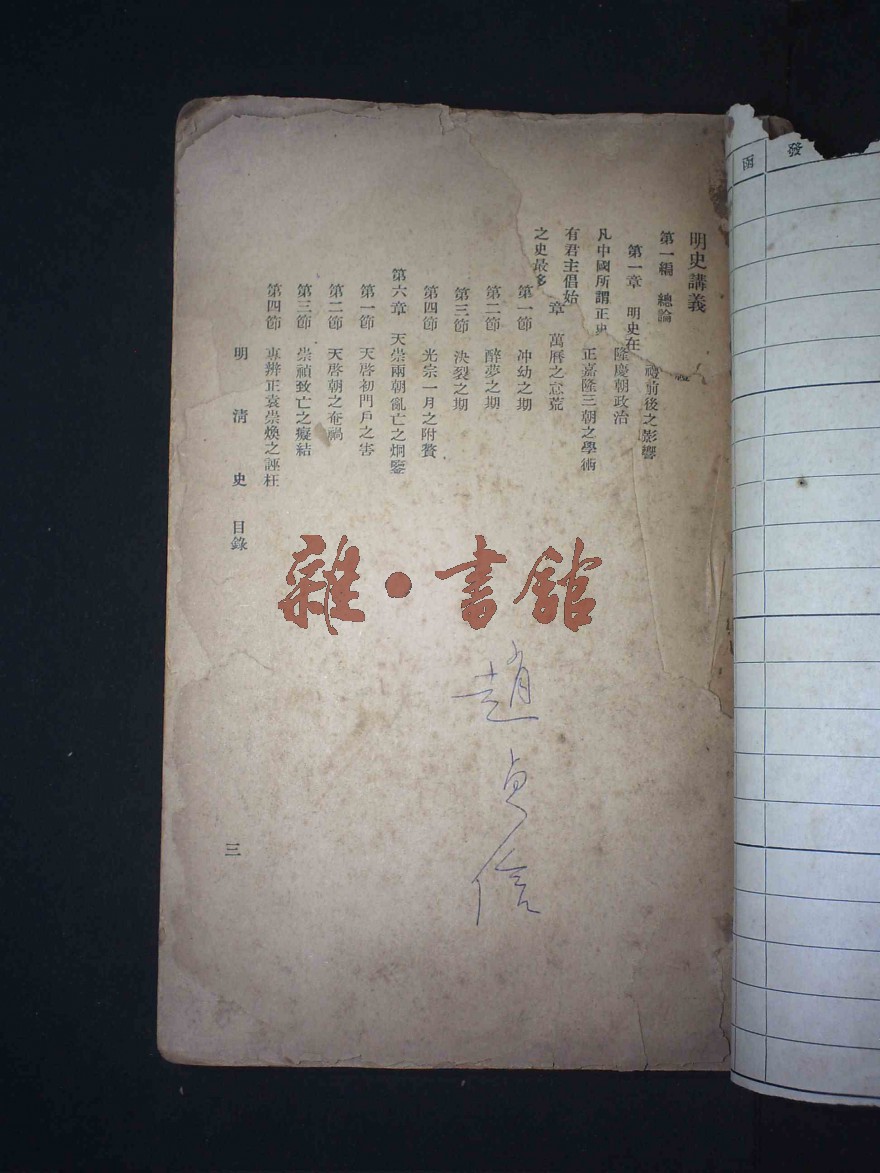 明史講義
第一編 總論
第一章 明史在
禮前後之影響
隆慶朝政治
凡中國所謂正史
正嘉隆三朝之學術
有君主倡始
章 萬曆之怠荒
之史最多
第一節 冲幼之期
第二節 醉夢之期
第三節 決裂之期
第四節 光宗一月之附贅
第六章 天崇兩朝亂亡之炯鑒
第一節 天啓初門戶之害
第二節 天啓朝之奄禍
第三節 崇禎致亡之癥結
第四節 專辨正袁崇煥之誣枉
明清史 目錄
三
雜·書館
趙貞信
發
函